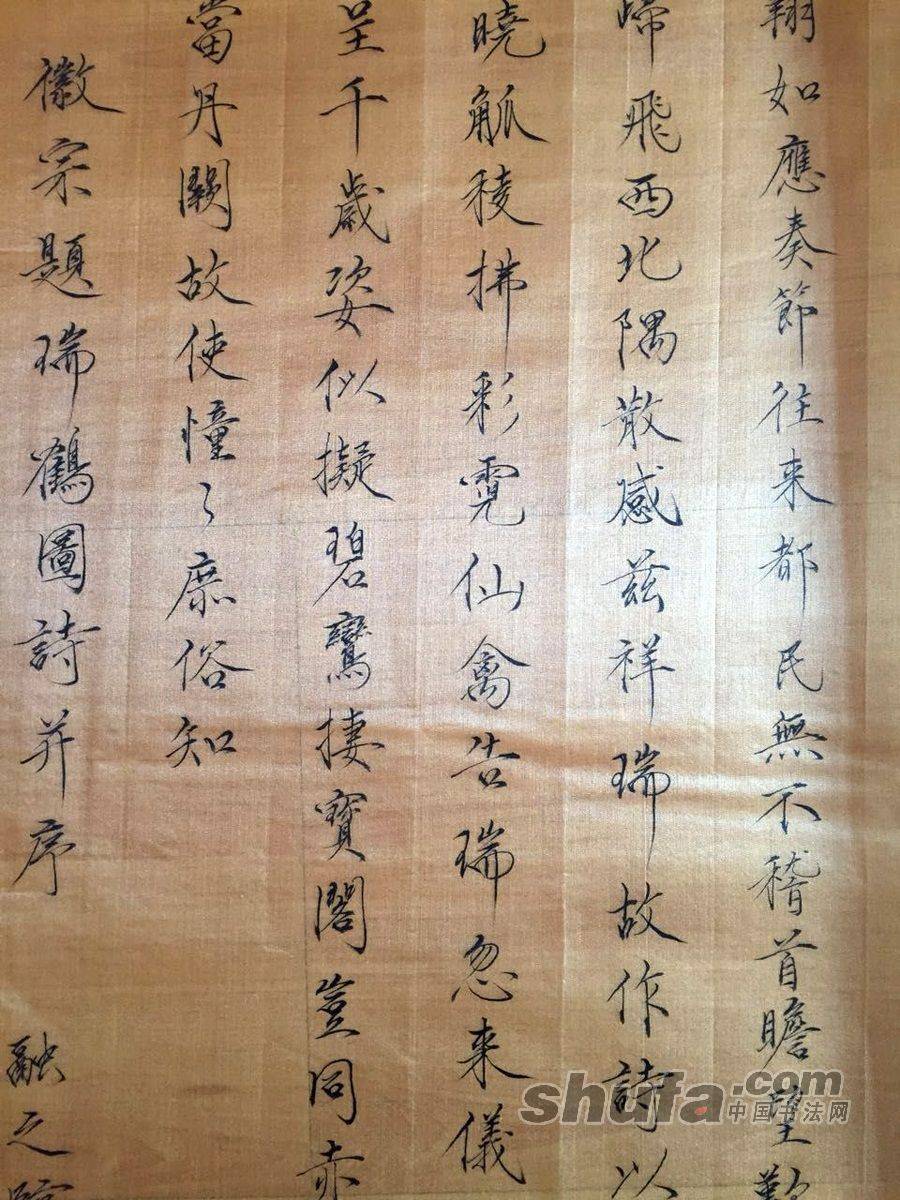 翔如應奏節往來都民無不稽首瞻望歎
啼飛西北隅散感茲祥瑞故作詩以
曉觚稜拂彩霓仙禽告瑞忽來儀
呈千歲姿似擬碧鸞棲寶閣豈同赤
當丹闕故使憧〻庶俗知
徽宗題瑞鶴圖詩并序
融之
shufa.com
中国书法网